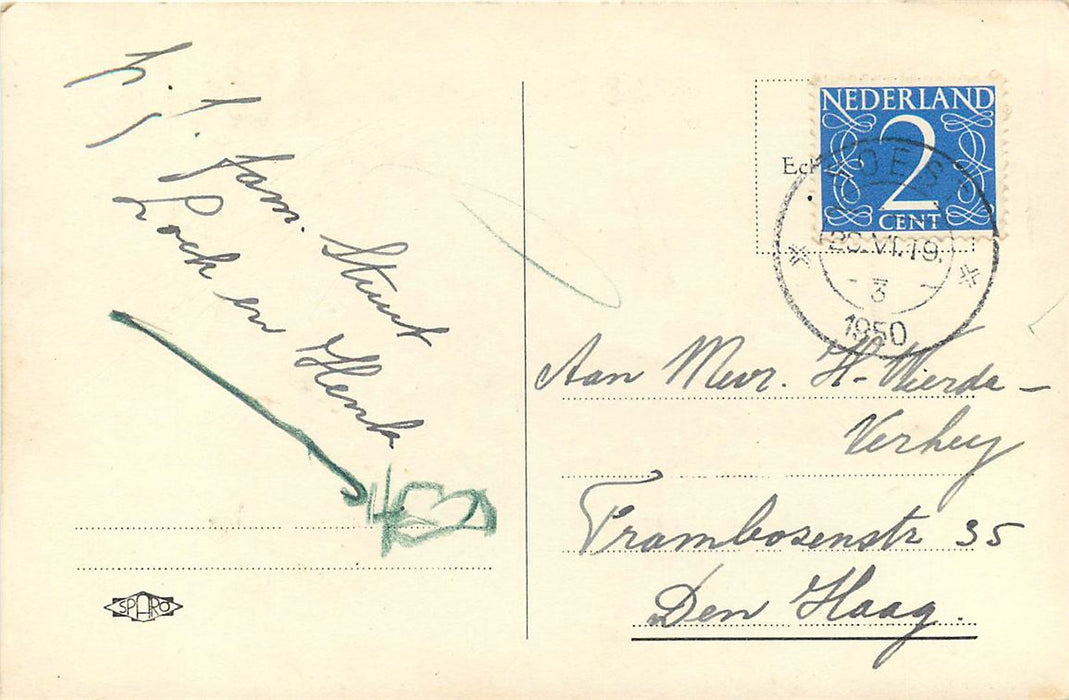 h. g.
fam. Stuut
Loek en Henk
SPARO
NEDERLAND
2
CENT
GOES
20.VI.19.
3
1950
Aan Mevr. H. Wierda -
Verhey
Frambosenstr 35
Den Haag.